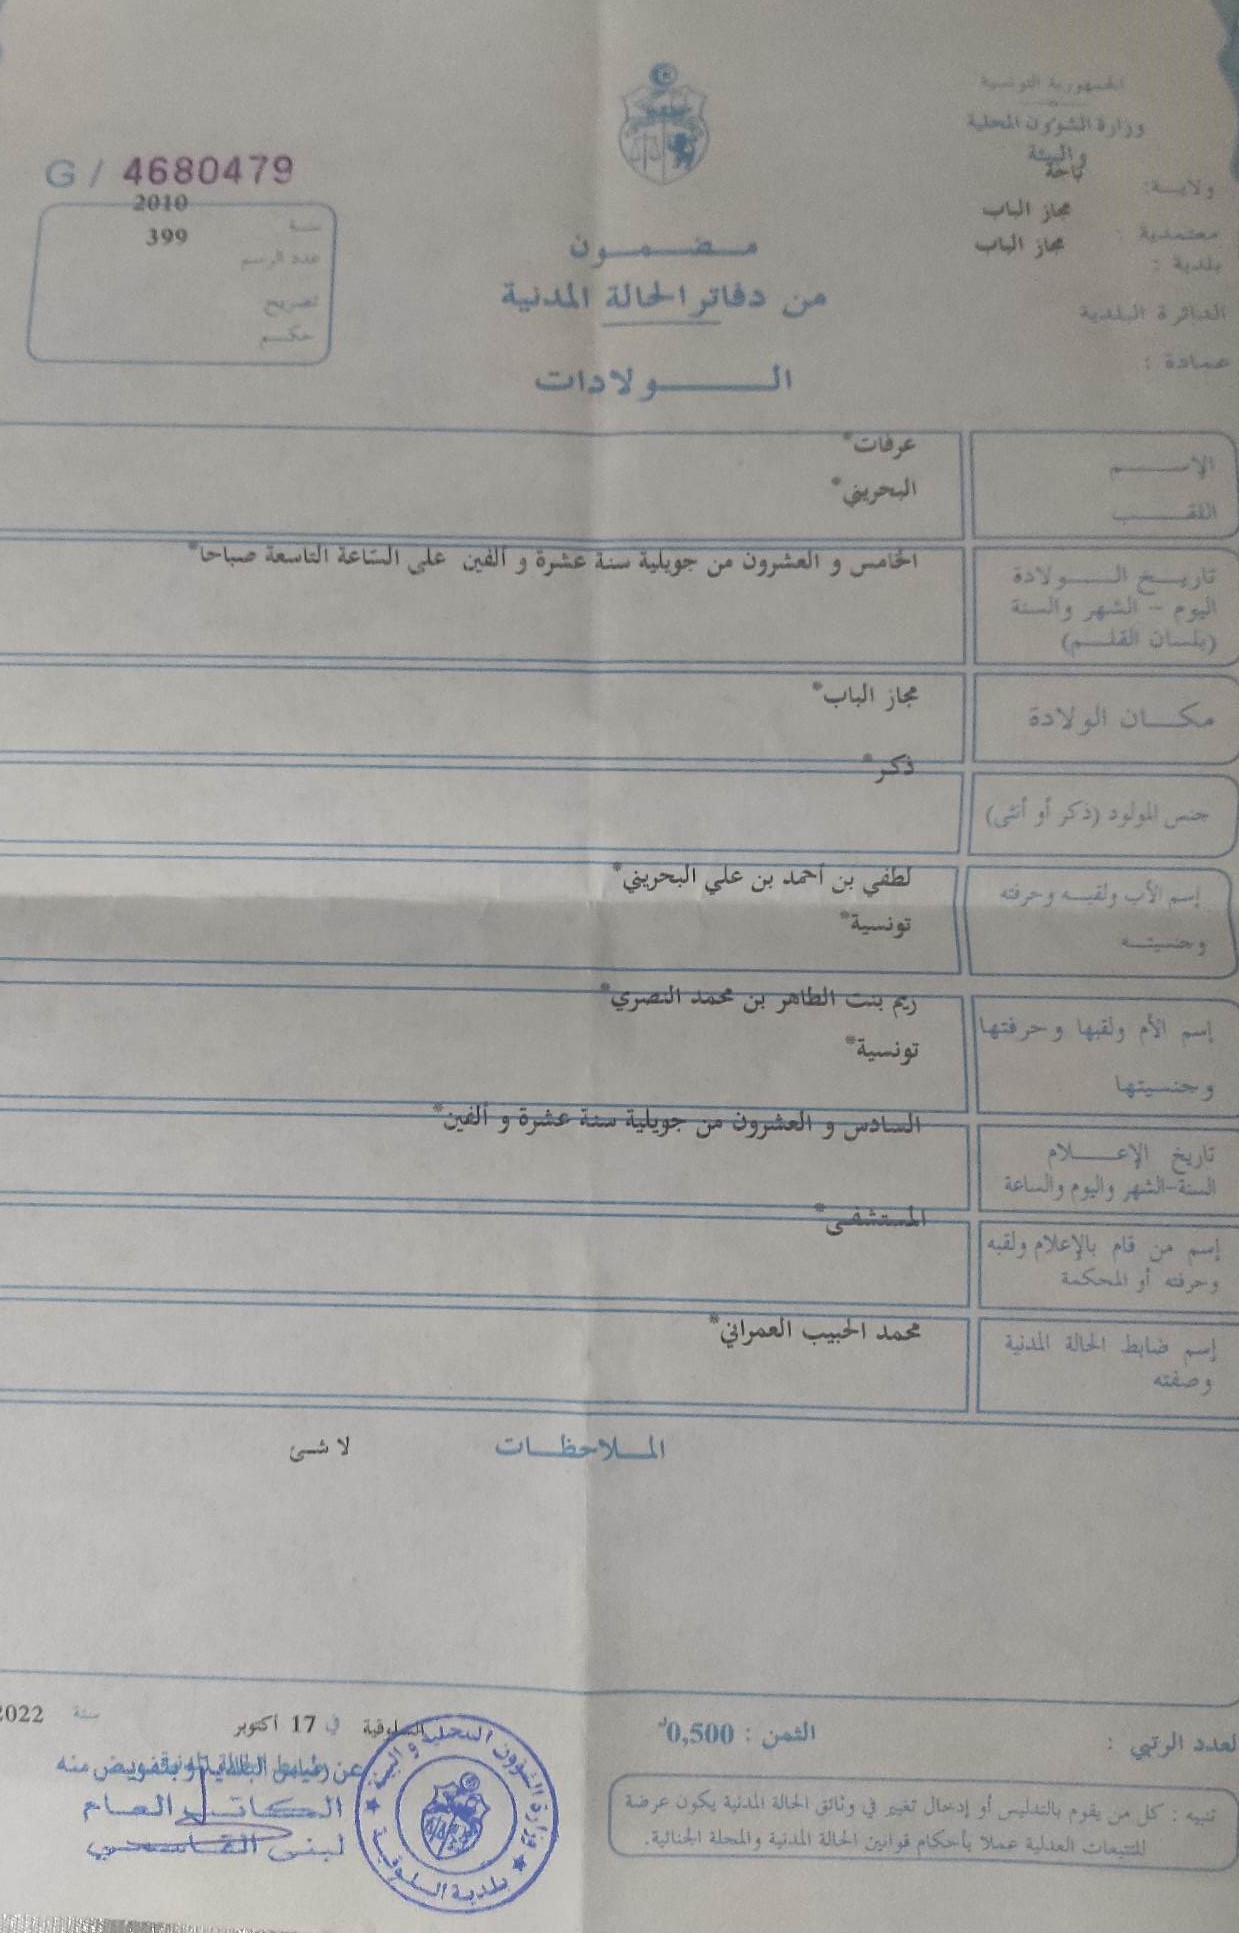 الجمهورية التونسية
وزارة الشؤون المحلية
والبيئة
ولاية: باجة
معتمدية : مجاز الباب
بلدية : مجاز الباب
الدائرة البلدية
عمادة :
G / 4680479
سنة 2010
عدد الرسم 399
تصريح
حكم
مضمون
من دفاتر الحالة المدنية
الولادات
الإسم عرفات*
اللقب البحريني*
تاريخ الولادة
اليوم - الشهر والسنة
(بلسان القلم)
الخامس و العشرون من جويلية سنة عشرة و ألفين على الساعة التاسعة صباحا*
مكان الولادة مجاز الباب*
جنس المولود (ذكر أو أنثى) ذكر*
إسم الأب ولقبه وحرفته لطفي بن أحمد بن علي البحريني*
وجنسيته تونسية*
إسم الأم ولقبها وحرفتها ريم بنت الطاهر بن محمد النصري*
وجنسيتها تونسية*
تاريخ الإعلام
السنة-الشهر واليوم والساعة
السادس و العشرون من جويلية سنة عشرة و ألفين*
إسم من قام بالإعلام ولقبه
وحرفته أو المحكمة
المستشفى*
إسم ضابط الحالة المدنية
وصفته
محمد الحبيب العمراني*
الملاحظات لا شئ
لعدد الرتبي :
الثمن : 0,500د
السلوقية في 17 أكتوبر سنة 2022
تنبيه : كل من يقوم بالتدليس أو إدخال تغيير في وثائق الحالة المدنية يكون عرضة
للتتبعات العدلية عملا بأحكام قوانين الحالة المدنية والمجلة الجنائية.
وزارة الشؤون المحلية و البيئة
بلدية السلوقية
الكاتب العام
لبنى القاسمي